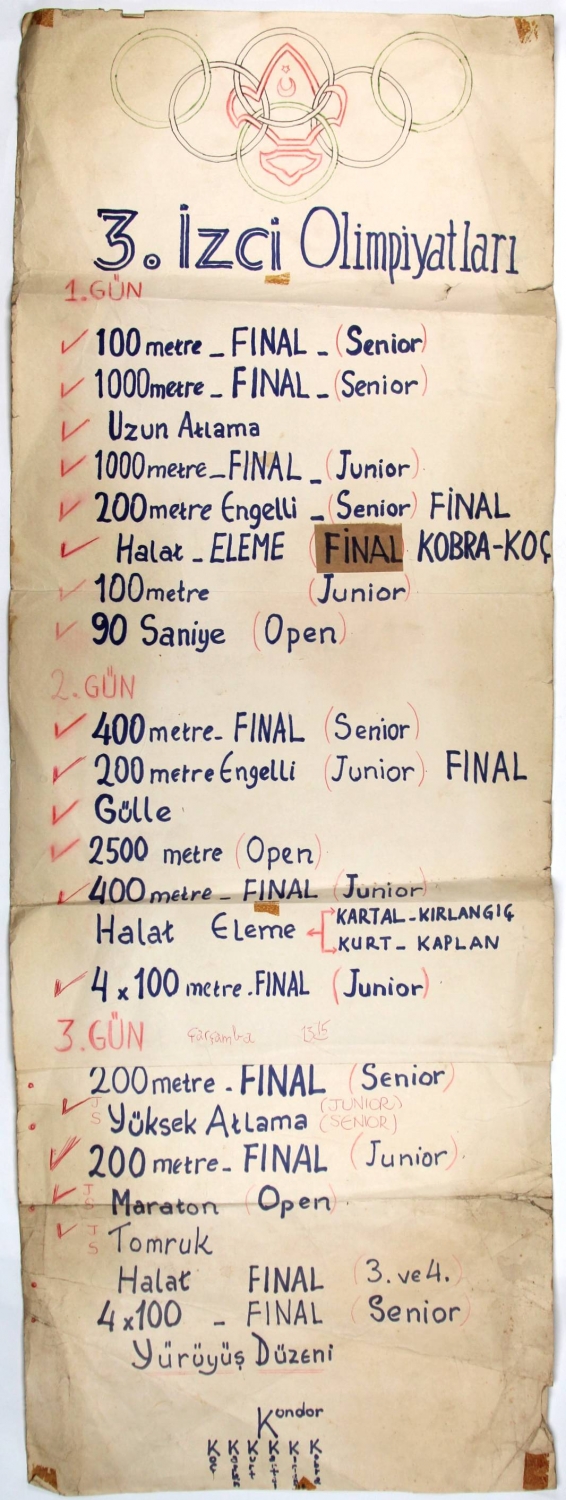 3. İzci Olimpiyatları
1.GÜN
100 metre - FINAL - (Senior)
1000metre - FINAL - (Senior)
Uzun Atlama
1000 metre - FINAL - (Junior)
200metre Engelli - (Senior) FİNAL
Halat - ELEME (FİNAL KOBRA-KOÇ
100 metre (Junior)
90 Saniye (Open)
2.GÜN
400 metre - FINAL (Senior)
200 metre Engelli (Junior) FINAL
Gülle
2500 metre (Open)
400 metre - FINAL (Junior)
Halat Eleme KARTAL-KIRLANGIÇ
KURT - KAPLAN
4x100 metre - FINAL (Junior)
3.GÜN Çarşamba 15 15
200metre - FINAL (Senior)
J S Yüksek Atlama (JUNIOR) (SENIOR)
200 metre - FINAL (Junior)
J S Maraton (Open)
J S Tomruk
Halat FINAL (3. ve 4.
4x100 - FINAL (Senior)
Yürüyüş Düzeni
Kondor
Koç Kurt